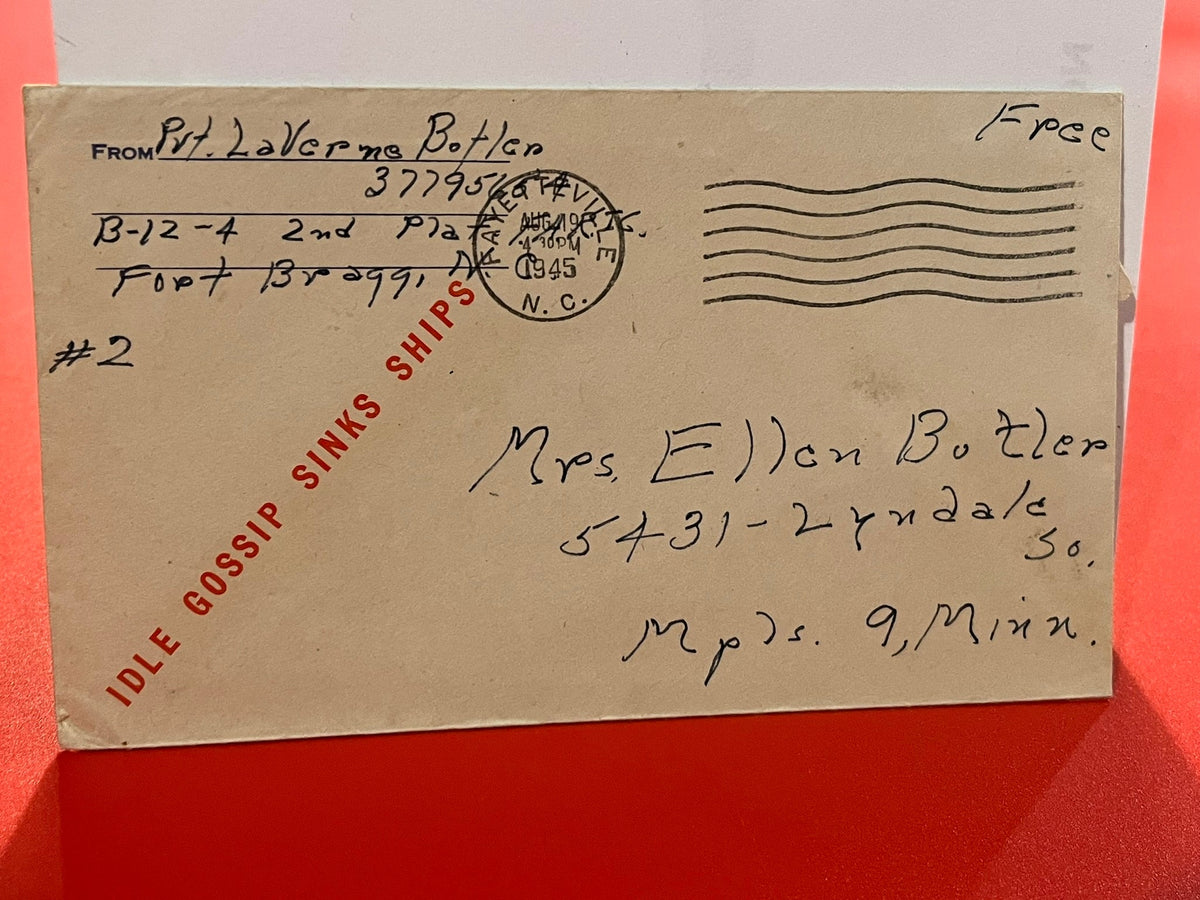 Free
FROM Pvt. LaVerne Botler
377951
B-12-4 2nd Plat
Fort Bragg, N
FAYETTEVILLE
AUG 19
4 30 PM
1945
N. C.
#2
IDLE GOSSIP SINKS SHIPS
Mrs. Ellen Botler
5431-Lyndale
So.
Mpls. 9, Minn.